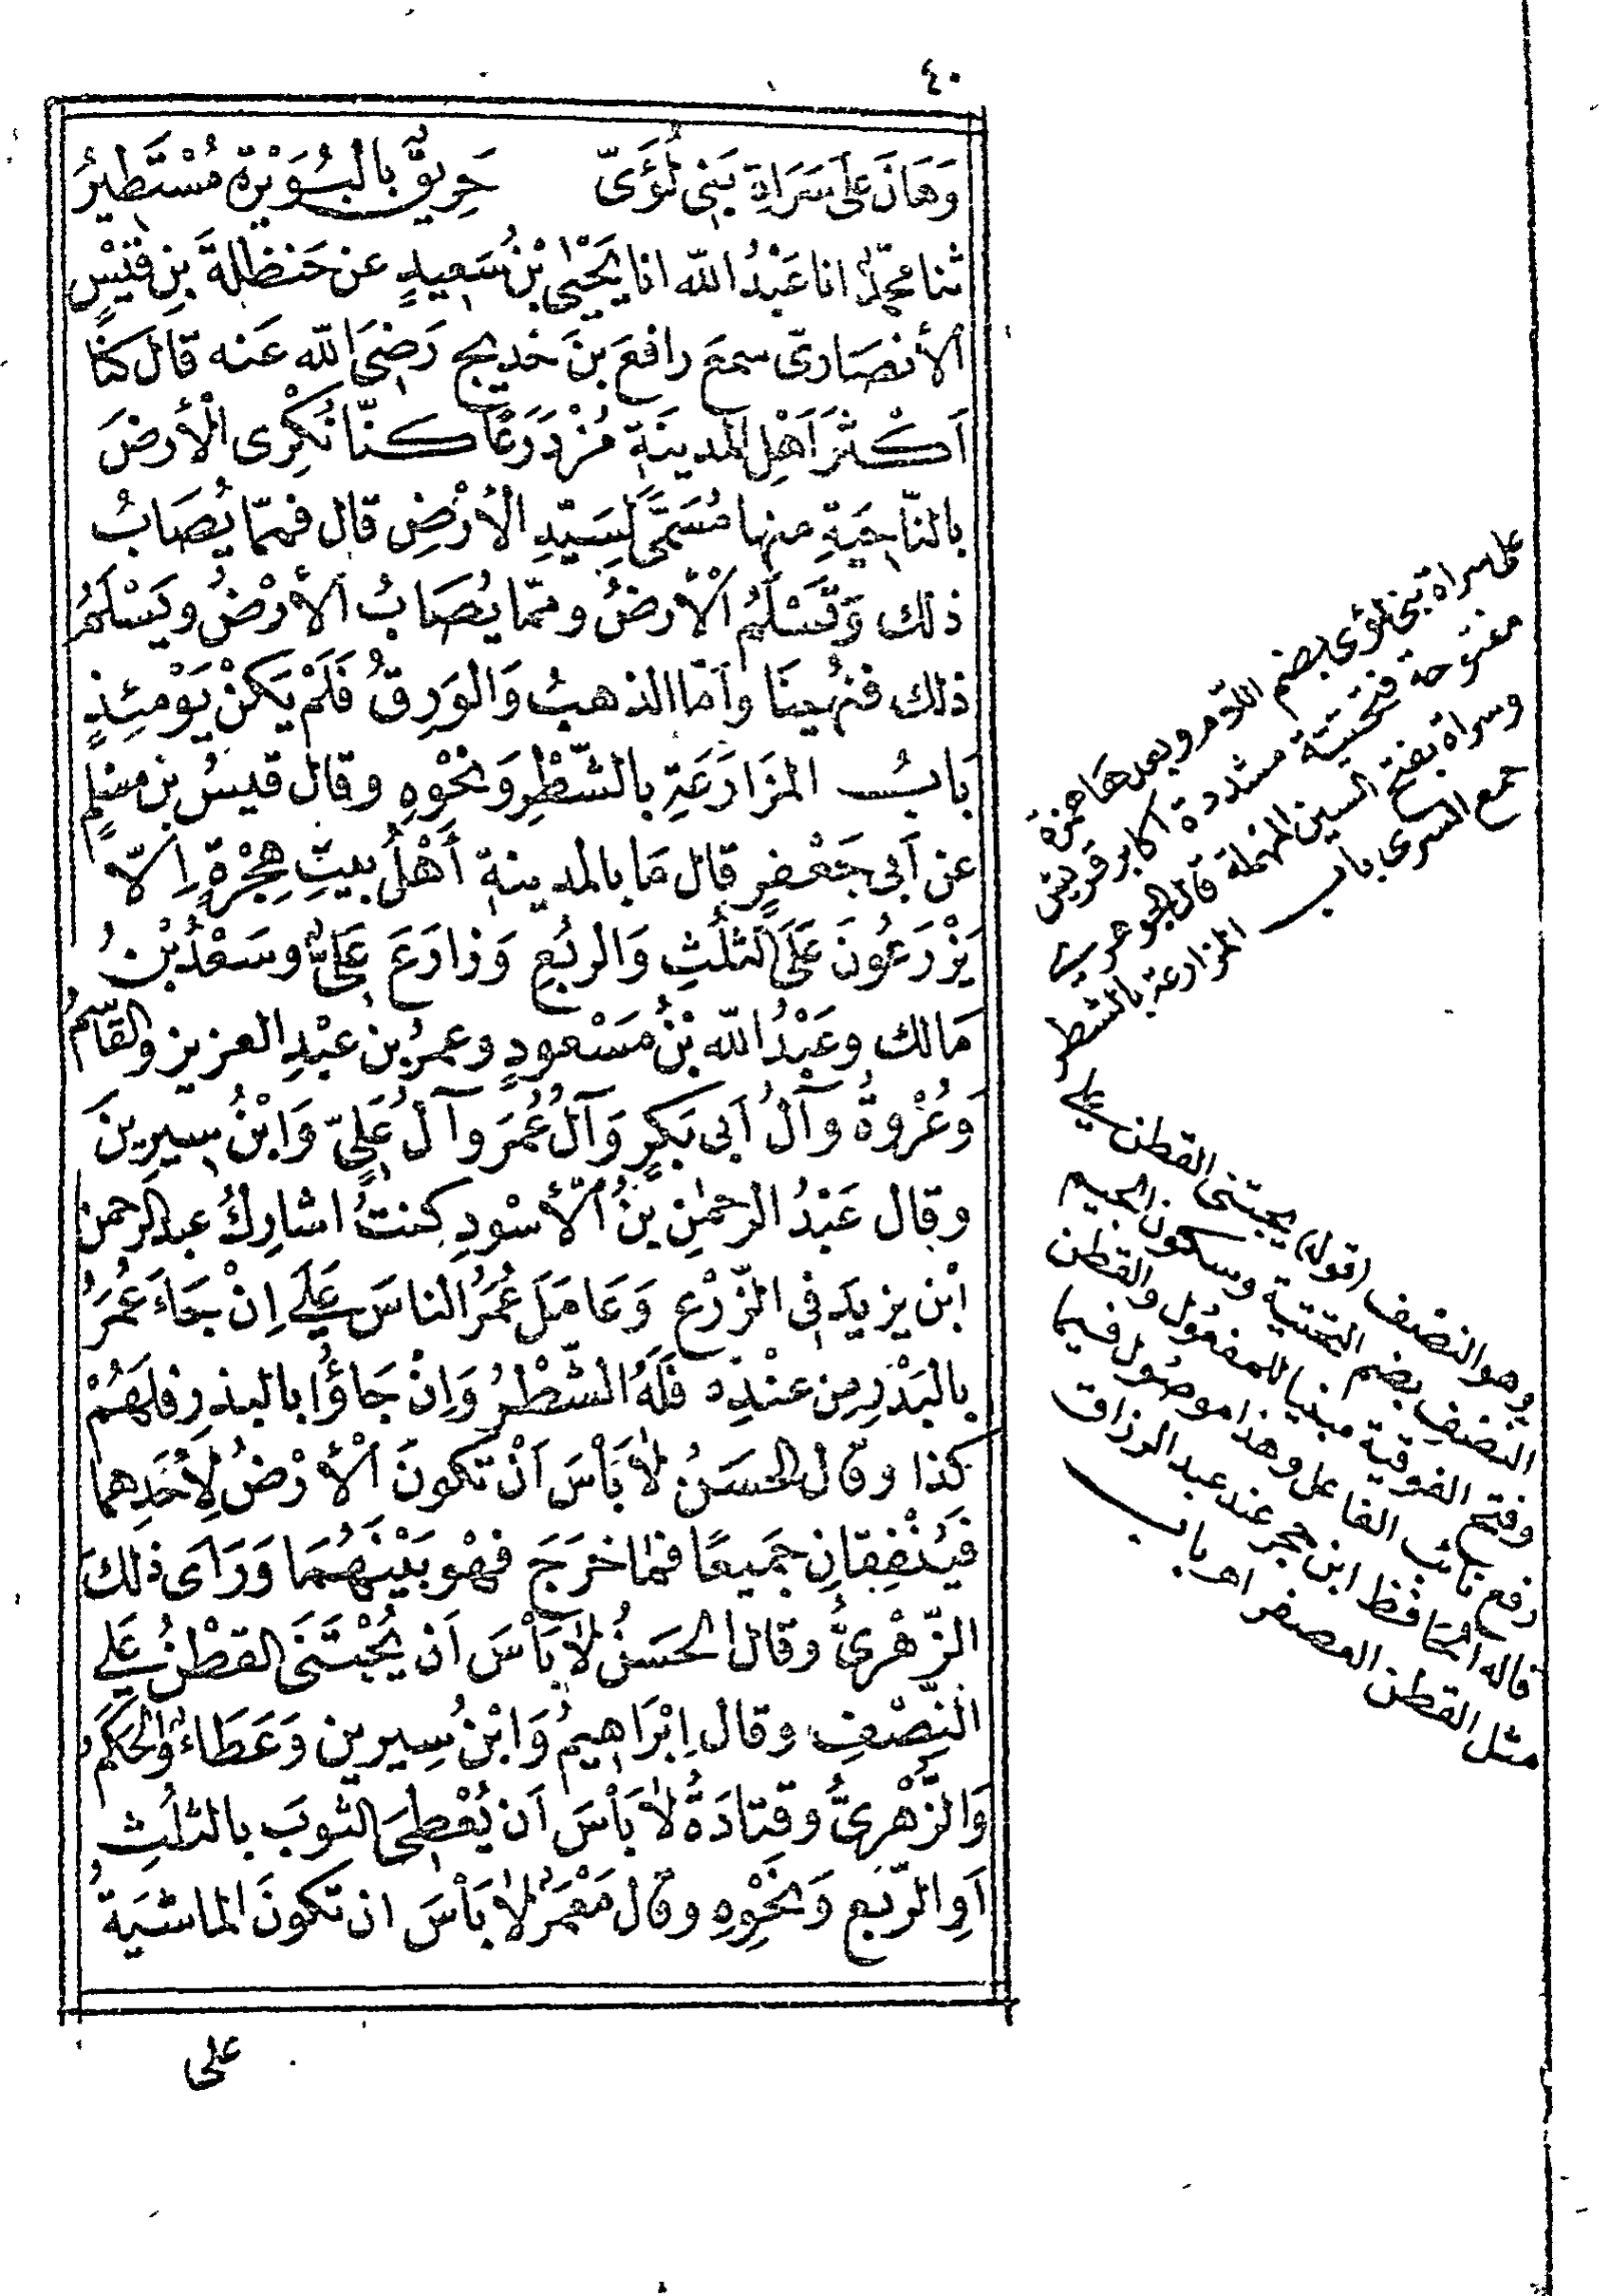 ٤٠
وَهَانَ عَلَى سَرَاةِ بَنِى لُؤَىّ حَرِيقٌ بِالبُوَيْرَةِ مُسْتَطِيرُ
ثنا محمّدٌ انا عَبْدُ الله انا يَحْيَى بْنُ سَعِيدٍ عن حَنظلةَ بنِ قَيْسٍ
الأنصَارىّ سمعَ رافعَ بنَ خديجٍ رَضِىَ الله عَنه قال كنّا
اَكْثَرَ اَهْلِ المدينَةِ مُزْدَرَعًا كنّا نُكْرِى الْأَرضَ
بالنّاحِيَةِ منها مُسَمًّى لِسَيّدِ الْأَرْضِ قال فممّا يُصَابُ
ذلك وَتَسْلَمُ اَلْأَرضُ ومما يُصَابُ اَلأَرْضُ ويَسْلَمُ
ذلك فنُهِينَا واَمّا الذهبُ وَالوَرِقُ فَلَمْ يَكنْ يَوْمئِذٍ
بَابُ المزَارَعَةِ بالشّطْرِ وَنحْوِهِ وقال قيسُ بن مسْلِمٍ
عن اَبى جَعْفَرٍ قال مَا بالمدينةِ أَهْلُ بيتِ هِجْرَةٍ اِلّا
يَزْرَعُونَ عَلَى الثلُثِ وَالربُعِ وَزارَعَ عَلىٌّ وسَعْدُ بْنُ
مَالك وعَبْدُ الله بْنُ مَسْعودٍ وعمرُ بن عَبْدِ العزيز والقاسمُ
وَعُرْوةُ وآلُ اَبى بَكرٍ وَآلُ عُمَرَ وآلُ عَلِىّ وَابْنُ سِيرِينَ
وقال عَبْدُ الرحمٰنِ بنُ اَلْأَسْودِ كنتُ اشارِكُ عبد الرحمن
ابْن يزيدَ فى الزّرْعِ وَعَامَلَ عُمَرُ الناسَ عَلَى اِنْ جَاءَ عُمَرُ
بالبَذْرِ مِن عنْدِه فَلَهُ الشّطْرُ وَاِنْ جَاؤُا بالبذرِ فلَهُمْ
كذا وقال الحسَنُ لاٰ بَأْسَ اَنْ تكونَ اَلْأَرْضُ لِأَحَدِهما
فَيُنْفِقانِ جَمِيعًا فمٰا خرَجَ فهْو بَيْنَهُمَا وَرَاَى ذلكَ
الزّهْرِىُّ وقال الحسَنُ لاٰ بَأْسَ اَن يُجْتَنَى القطْنُ عَلى
النِّصْفِ وقال اِبْرَاهِيمُ وَابْنُ سِيرين وَعَطَاءٌ والحَكَمُ
وَالزُّهْرِىُّ وقتادَةُ لاٰ بَأْسَ اَن يُعْطِىَ الثوبَ بالثلُثِ
اَوِ الرّبعِ وَنحْوِهِ وقال مَعْمَرٌ لاٰ بَأْسَ ان تكونَ الماشيَةُ
على
على سراة بنى لؤى بضم اللام وبعدها همزة
مفتوحة فتحتيّة مشددة اكابر قريش
وسراة بفتح السين المهملة قال الجوهرى
جمع السرى باب المزارعة بالشطر
وهو النصف (قوله) يجتنى القطن على
النصف بضم التحتية وسكون الجيم
وفتح الفوقية مبنيا للمفعول والقطن
رفع نائب الفاعل وهذا موصول فيما
قاله الحافظ ابن حجر عند عبد الرزاق
مثل القطن العصفر اهـ باب